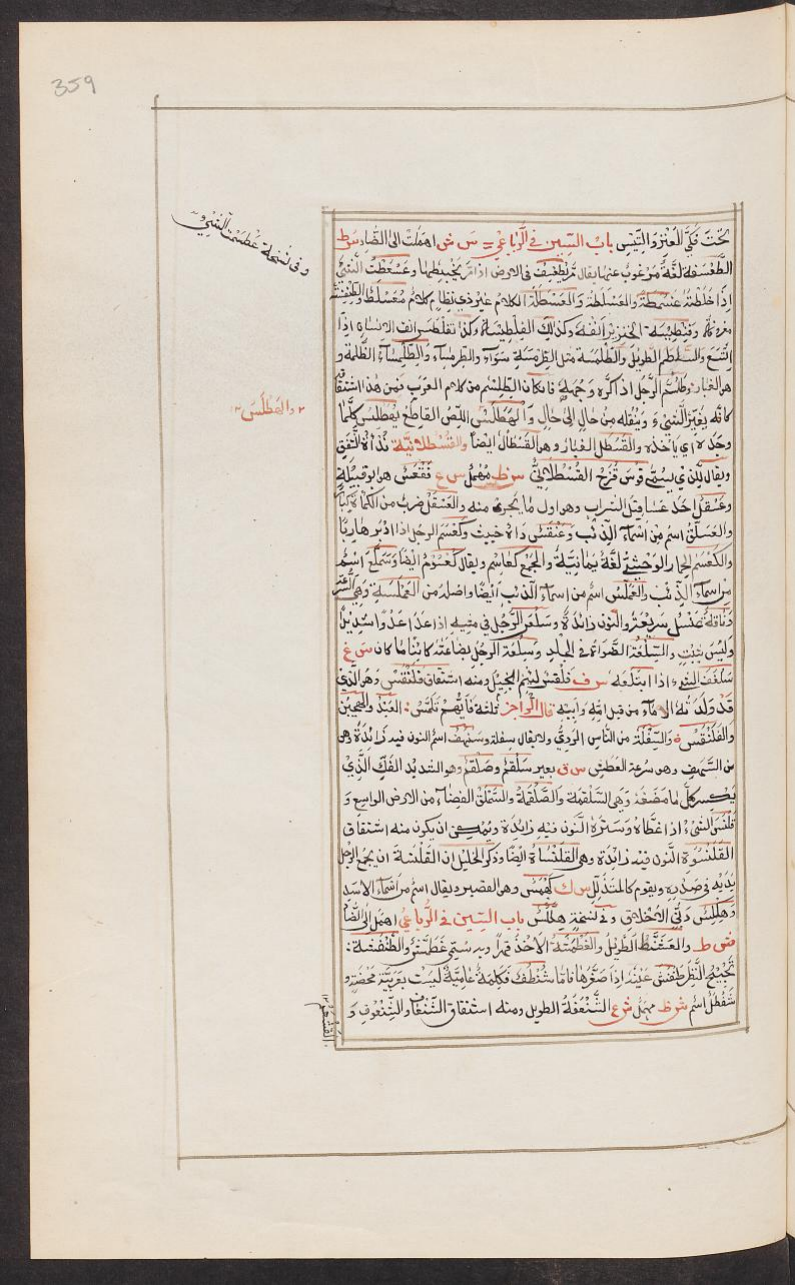 359
وفى نسخة غطست الشيء
تحت فكَّي العنز والتيس باب السين فى الرباعى س ش اهملت الى الضاد س ط
الطعسفة لغة مرغوب عنها يقال مر يطعسف فى الارض اذا مر يخبطها وعسمطت الشئ
اذا خلطته عسمطة والعسلطة والعسطلة الكلام غير ذى نظام كلام معسلط والطنفسة
معروفة وفنطيسة الخنزير انفه وكذلك الفلطيسة وكذا تفلطس انف الانسان اذا
اتسع والسلطم الطويل والطلمسة مثل الطرمسة سواء والطرمساء والطلمساء الظلمة و
هو الغبار وطلسم الرجل اذا كره وجهه فان كان الطلسم من كلام العرب فمن هذا اشتقاقه
كانه يغير الشىء وينقله من حال الى حال والهطلس اللص القاطع يهطلس كلما
٢ والهطلس ٢
وجده اى ياخذه والقسطل الغبار وهو القسطال ايضا والقسطلانية نداة الشفق
ويقال للذى يسمى قوس قزح القسطلانى س ظ مهمل س ع فقعس هو ابو قبيلة
وعسقل احد عساقيل السراب وهو اول ما يجرى منه والعسقل ضرب من الكماة كبار
والعسلق اسم من اسماء الذئب وعنقس داه خبيث وكعسم الرجل اذا ادبر هاربا
والكعسم الحمار الوحشى لغة يمانية والجمع كعاسم ويقال كعسوم ايضا وسملع اسم
من اسماء الذئب والعملس اسم من اسماء الذئب ايضا واصله من العملسة وهى السرعة
وناقة عنسل سريعة والنون زائدة وسلعن الرجل فى مشيه اذا عدا عدوا شديدا
وليس بثبت والسلعة الضواة فى الجلد وسلعة الرجل بضاعته كائنا ما كان س غ
سلغف الشىء اذا ابتلعه س ف فلقس لئيم البخيل ومنه اشتقاق فلنقس وهو الذى
قد ولدته الاماء من قبل امه وابيه قال الراجز ثلثة فايهم تلمس العبد والهجين
والفلنقس والسفلة من الناس الردى ولا يقال سفلة وسنهف اسم النون فيه زائدة وهى
من السهف وهو سرعة العطش س ق بعير سلقم وصلقم وهو الشديد الفك الذى
يكسر كل ما مضغه وهى السلقمة والصلقمة والسملق الفضاء من الارض الواسع و
قلنس الشىء اذا غطاه وستره النون فيه زائدة ويمكن ان يكون منه اشتقاق
القلنسوة النون فيه زائدة وهى القلنساة ايضا وذكر الخليل ان القلنسة ان يجمع الرجل
يديه فى صدره ويقوم كالمتذلل س ك كهمس وهو القصير ويقال اسم من اسماء الاسد
وهلس دنى الاخلاق وفى نسخة هلمس باب الشين فى الرباعى اهمل الى الضاد
ش ط والعشنط الطويل والغطمشة الاخذ قهرا وبه سمى غطمش والطنفشة
تحميج النظر طنفش عينه اذا صغرها فاما شنطف فكلمة عامية ليست بعربية محضة و
شفطل اسم ش ظ مهمل ش ع الشنعفة الطويل ومنه اشتقاق الشنعاف والشنعوف و